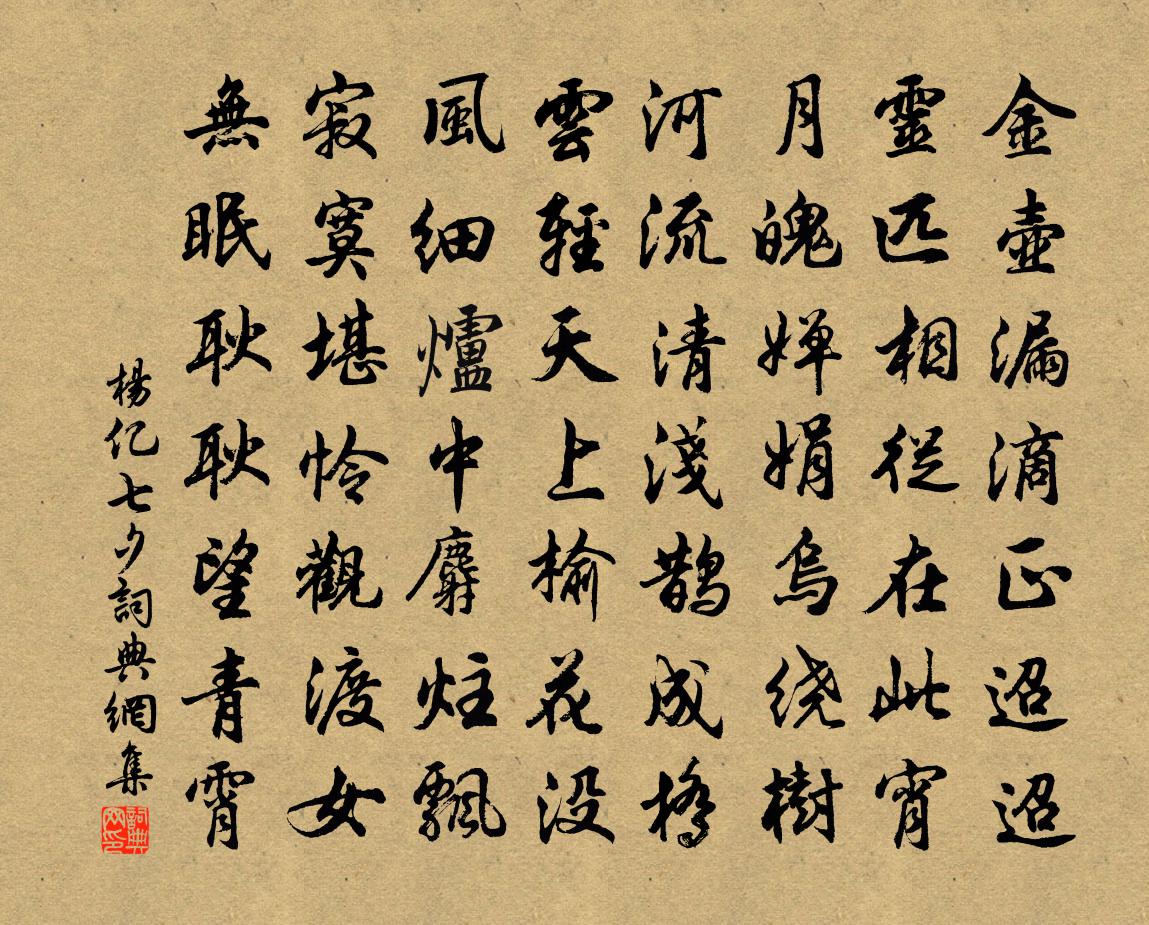 金壺漏滴正迢迢
靈匹相從在此宵
月魄嬋娟烏绕樹
河流清淺鵲成橋
雲輕天上榆花没
風細爐中麝炷飄
寂寞堪怜觀渡女
無眠耿耿望青霄
楊亿七夕詞典網集
詞典网印